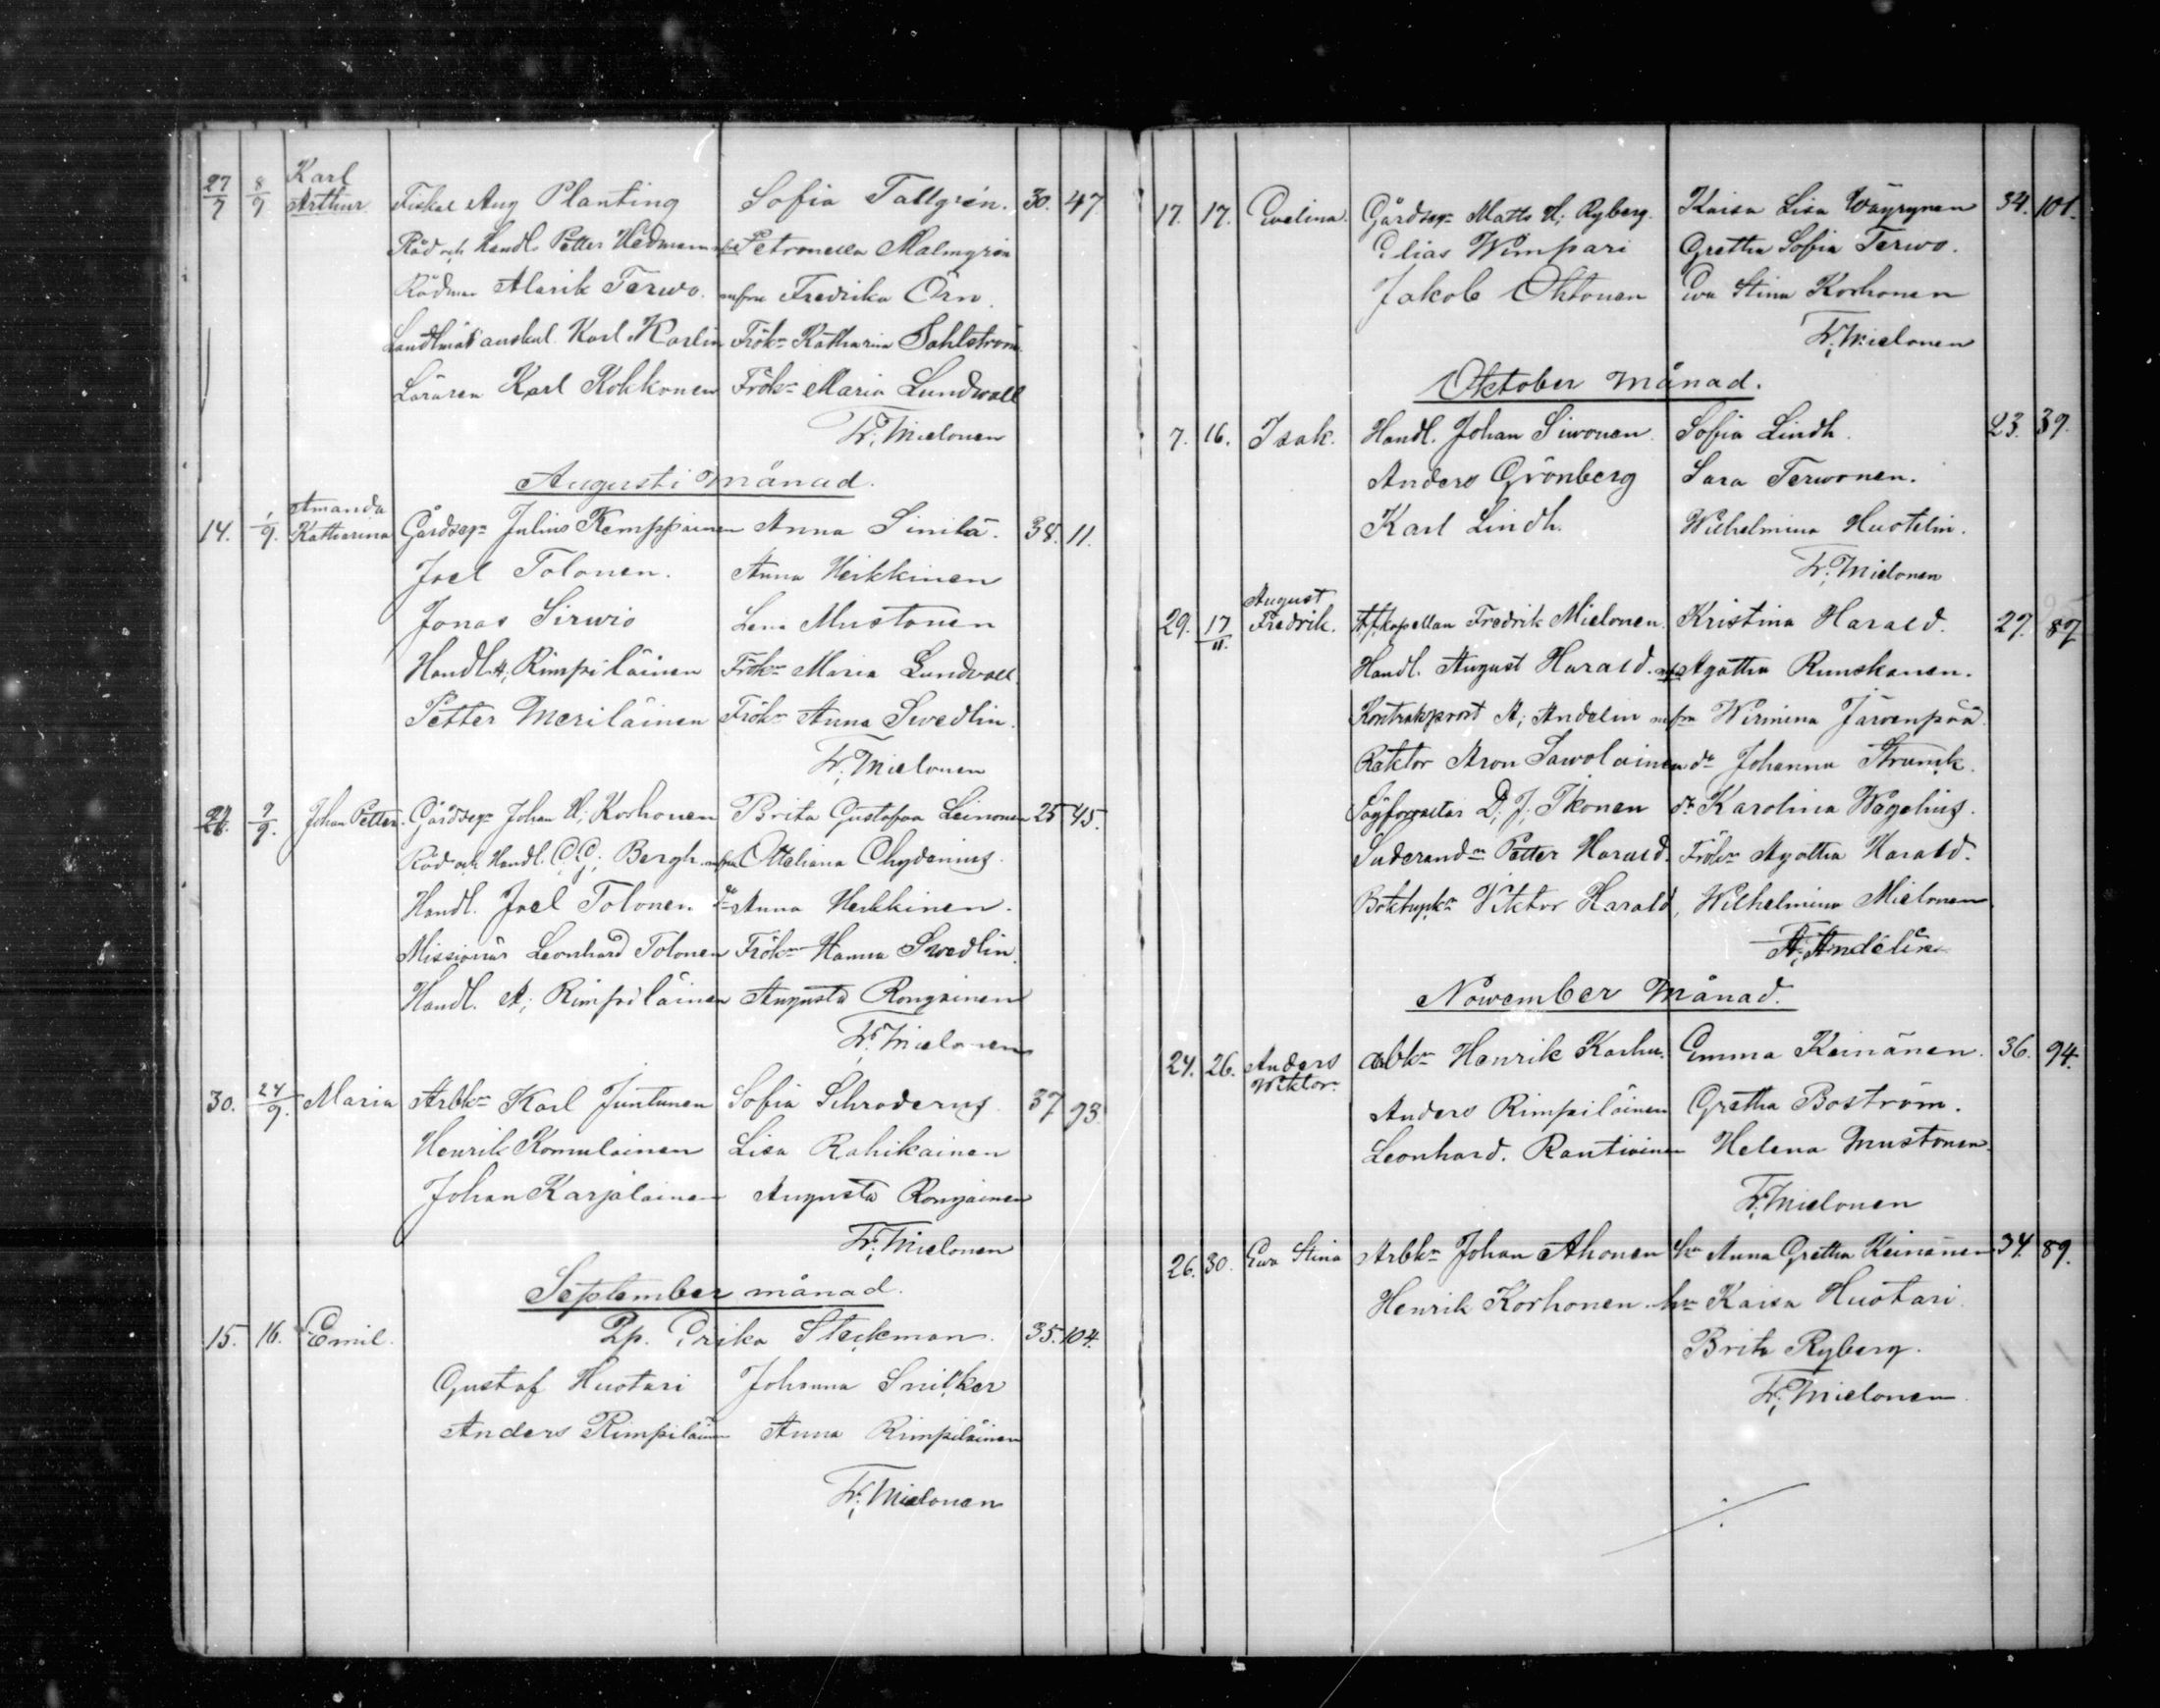 Karl
27/7 8/9 Arthur Fiskal Aug Planting Sofia Tallgrén. 30. 47.
Råd och Handl. Petter Hedman mfru Petronella Malmgrén
Rådman Alarik Terwo. mfru Fredrika Örn.
Landtmät auskul. Karl Karlin Frökn Katharina Sahlström.
Läraren Karl Kokkonen Frökn Maria Lundwall
Fr; Mielonen
Augusti månad.
Amanda
14. 1/9. Katharina Gårdsegn Julius Kemppainen Anna Sinilä. 38. 11.
Joel Tolonen. Anna Heikkinen
Jonas Sirwiö Lena Mustonen
Handl. A; Rimpiläinen Frökn Maria Lundvall.
Petter Meriläinen Frökn Anna Swedlin.
Fr; Mielonen
9/9. Johan Petter. Gårdsegn Johan H; Korhonen Brita Gustafva Leinonen 25 45.
Råd och Handl. C. G; Bergh. mfru Ottiliana Chydenius.
Handl. Joel Tolonen do Anna Heikkinen.
Missionär Leonhard Tolonen Frökn Hanna Swedlin.
Handl. A; Rimpiläinen Augusta Rongainen
Fr; Mielonen
30. 24/9. Maria Arbkn Karl Juntunen Sofia Schroderus. 37 93.
Henrik Komulainen Lisa Rahikainen
Johan Karjalainen Augusta Rongainen
Fr; Mielonen
September månad.
15. 16. Emil. Qp. Erika Steckman. 35. 104.
Gustaf Huotari Johanna Snilker
Anders Rimpiläinen Anna Rimpiläinen
Fr; Mielonen
17. 17. Evelina. Gårdsegn Matts H; Ryberg. Kaisa Lisa Wäyrynen 34. 101.
Elias Wimpari Gretha Sofia Terwo.
Jakob Ohtonen Ewa Stina Korhonen
Fr; Mielonen
Oktober månad.
7. 16. Isak. Handl. Johan Siwonen. Sofia Lindh. 23. 39.
Anders Grönberg Sara Terwonen.
Karl Lindh. Wilhelmina Huotelin.
Fr; Mielonen
August
29. 17/11. Fredrik. kapellan Fredrik Mielonen. Kristina Harald. 27. 87
Handl. August Harald. mfru Agatha Runskanen.
Kontraktsprost A; Andelin mfru Wirmina Järvenpää.
Rektor Aron Sawolainen do Johanna Strunck.
D; J; Ikonen do Karolina Wegelius.
Petter Harald. Frökn Agatha Harald.
Boktryckn Viktor Harald, Wilhelmina Mielonen
A; Andelin
Nowember månad.
24. 26. Anders Arbkn Henrik Karhu. Emma Keinänen. 36. 94.
Wiktor.
Anders Rimpiläinen Gretha Boström.
Leonhard. Rantiainen Helena Mustonen.
Fr; Mielonen
26. 30. Ewa Stina Arbkn Johan Ahonen hn Anna Gretha Keinänen 34. 89.
Henrik Korhonen. hn Kaisa Huotari.
Brita Ryberg.
Fr; Mielonen.